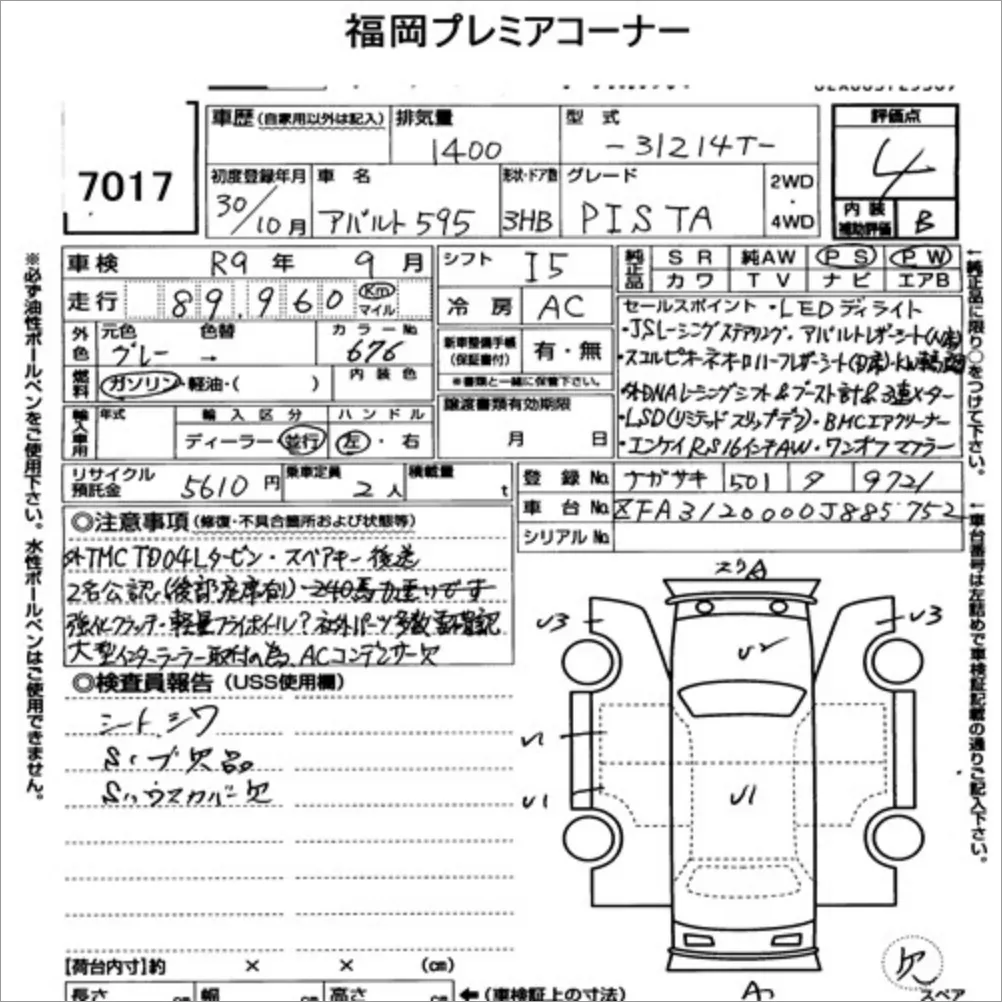 福岡プレミアコーナー
7017
車歴(自家用以外は記入)
排気量
1400
型式
-31214T-
評価点
4
内装
補助評価
B
初度登録年月
30/10月
車名
アバルト595
形状・ドア数
3HB
グレード
PISTA
2WD
・
4WD
車検 R9年 9月
走行 89,960 Km マイル
シフト I5
冷房 AC
純正品
SR 純AW PS PW
カワ TV ナビ エアB
外色
元色 色替
グレー →
カラーNo.
676
燃料
ガソリン・軽油・( )
内装色
新車整備手帳
(保証書付)
有・無
※書類と一緒に保管下さい。
輸入車用
年式
輸入区分
ディーラー・並行
ハンドル
左・右
譲渡書類有効期限
月 日
セールスポイント ・LEDディライト
・JSレーシングステアリング・アバルトレザーシート
・スコルピオーネオロハーフレザーシート
外DNAレーシングシフト&ブースト計&3連メーター
・LSD(リミテッドスリップデフ)・BMCエアクリーナー
・エンケイRS16インチAW・ワンオフマフラー
リサイクル
預託金
5610円
乗車定員
2人
積載量
t
登録No. ナガサキ 501 タ 9721
車台No. ZFA3120000J885752
シリアルNo.
◎注意事項(修復・不具合箇所および状態等)
外TMC TD04Lタービン・スペアキー後送
2名公認(後部座席有)・240馬力重いです
強化クラッチ・軽量フライホイール?社外パーツ多数要確認
大型インタークーラー取付の為、ACコンデンサー欠
◎検査員報告(USS使用欄)
シートシワ
欠品
カバー欠
U3
U3
U2
U1
U1
U1
欠
スペア
【荷台内寸】約 × × (㎝)
長さ ㎝ 幅 ㎝ 高さ ㎝
←(車検証上の寸法)
※必ず油性ボールペンをご使用下さい。水性ボールペンはご使用できません。
←純正品に限り○をつけて下さい。
←車台番号は左詰めで車検証記載の通りご記入下さい。